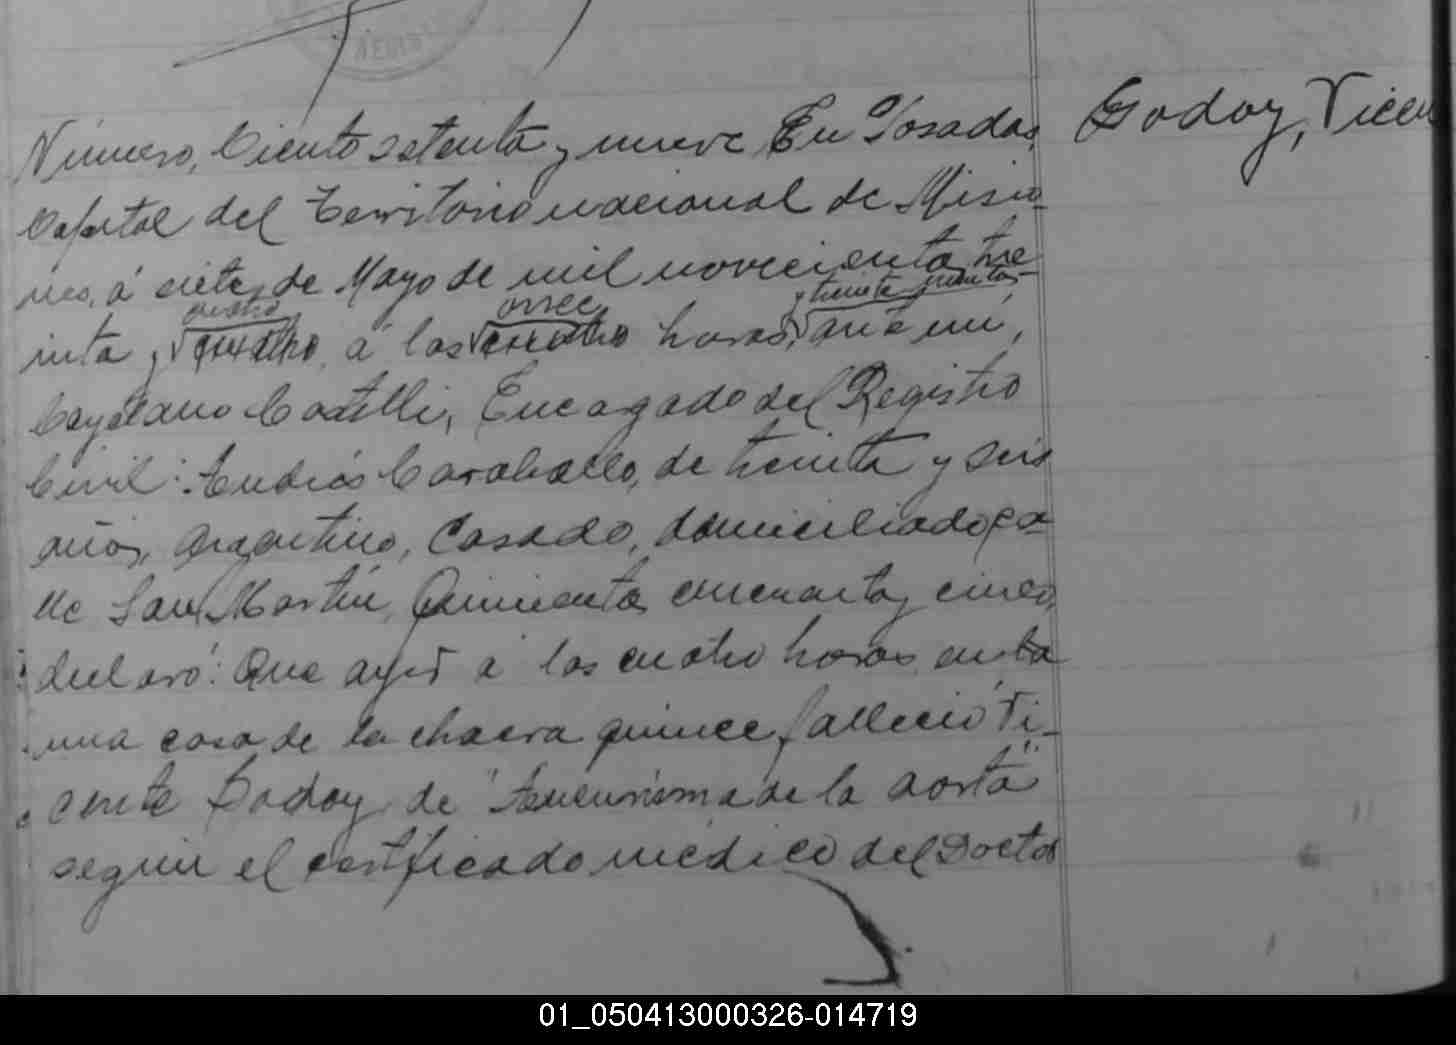 Número, Ciento setenta y nueve En Posadas,
Godoy, Vicen
Capital del Territorio nacional de Misio-
nes, á siete de Mayo de mil novecientos tre
cuatro once y treinta minutos
inta y cuatro, á las cuatro horas, ante mi,
Cayetano Castelli, Encagado del Registro
Civil: Andrés Caraballo, de treinta y seis
años, argentino, casado, domiciliado ca-
lle San Martín, Quinientos cincuenta y cinco,
declaró: Que ayer á las cuatro horas, en la
una casa de la chacra quince falleció Vi-
cente Godoy, de "Aneurisma de la aorta"
según el certificado médico del Doctor
01_050413000326-014719